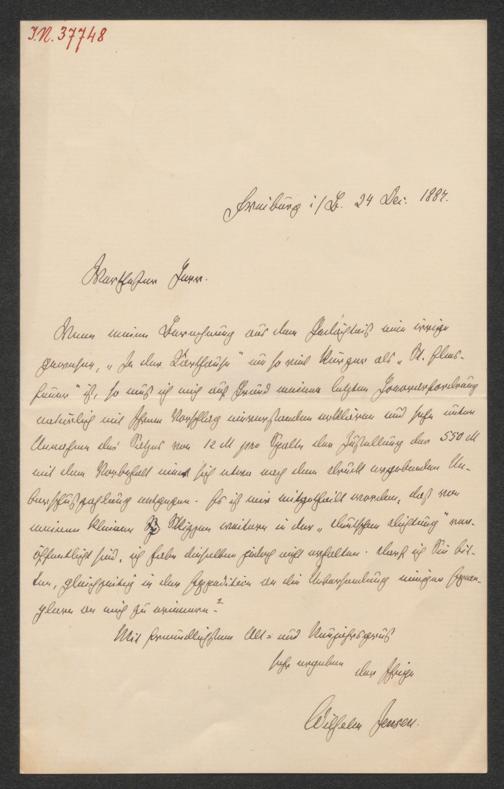 I.N. 37748
Freiburg i/B. 24 Dec. 1887.
Werthester Herr.
Wenn meine Berechnung aus dem Gedächtniß eine irrige
gewesen, „In der Karthause“ um so viel kürzer als „St. Elms-
feuer“ ist, so muß ich mich auf Grund meiner letzten Honorarforderung
natürlich mit Ihrem Vorschlag einverstanden erklären und sehe unter
Annahme des Satzes von 12 M pro Spalte der Zustellung der 550 M
mit dem Vorbehalt einer sich etwa nach dem Druck ergebenden Ue-
berschußzahlung entgegen. Es ist mir mitgetheilt worden, daß von
meinen kleinen Skizzen weitere in der „Deutschen Dichtung“ ver-
öffentlicht sind, ich habe dieselben jedoch nicht erhalten. Darf ich Sie bit-
ten, gleichzeitig in der Expedition an die Uebersendung einiger Exem-
plare an mich zu erinnern?
Mit freundlichstem Alt- und Neujahrsgruß
sehr ergeben der Ihrige
Wilhelm Jensen.